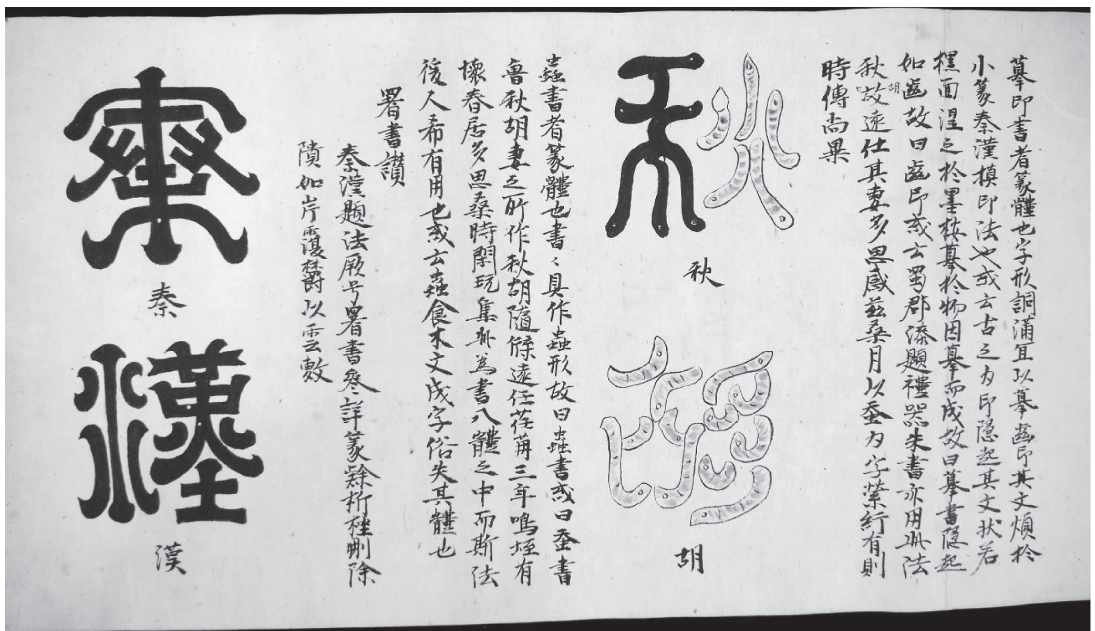 摹印書者篆體也字形詞浦宜以摹齒印其文煩於
小篆秦漢摸印法也或云古之为印隱起其文狀若
面涅之於墨按摹於物因摹而成故曰摹書隱起
如齒故曰齒印或云蜀郡漆題禮器朱書亦用此法
秋胡故遠仕其妻多思感茲桑月以蚕为字縈紆有則
時傳尚畢
秋
秋
胡
胡
蟲書者篆體也書〻具作蟲形故曰蟲書或曰蚕書
魯秋胡妻之所作秋胡隨牒遠仕荏苒三年鳴蛭有
懷春居多思桑時閑玩集此為書八體之中而斯法
後人希有用也或云蟲食木文成字俗失其體也
署書讃
秦漢題法厥号署書參詳篆隸析桎刪除
隤如岸欝以雲敷
秦
秦
漢
漢